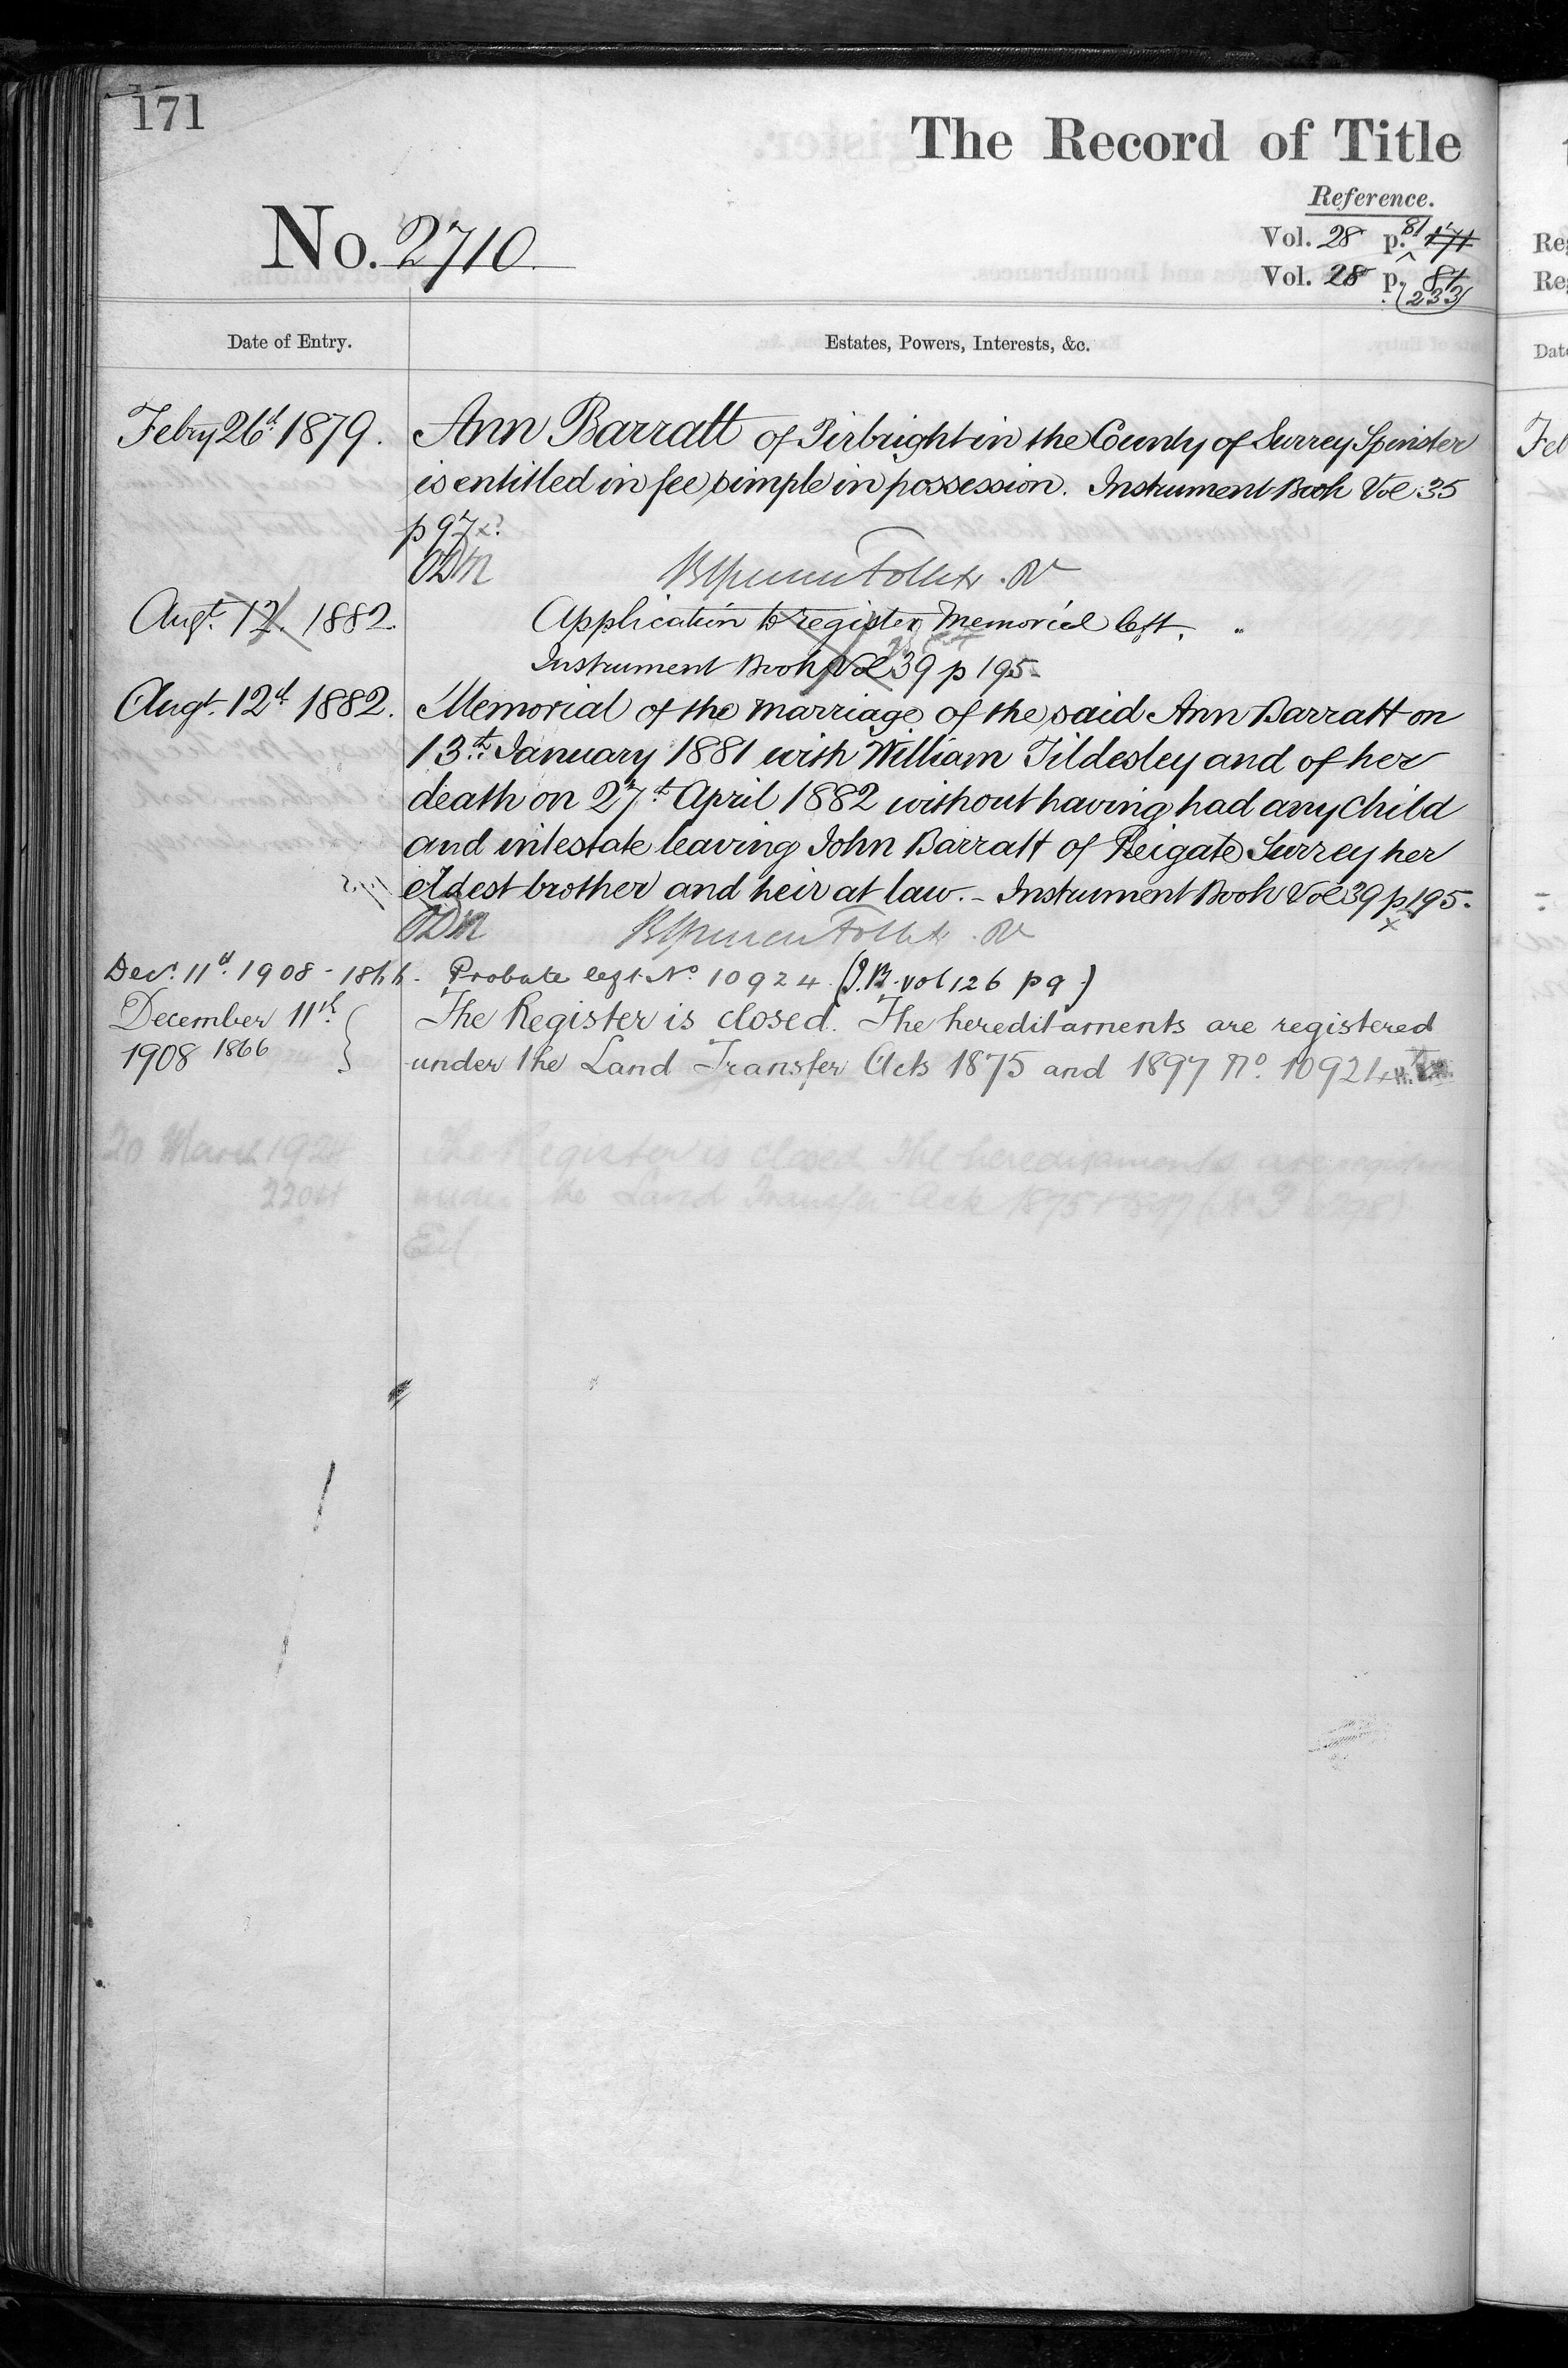 171
The Record of Title
Reference.
No. 2710.
Vol. 28 p. 81 171
Vol. 28 p. 81
(233)
Date of Entry.
Estates, Powers, Interests, &c.
Feby 26th 1879.
Ann Barratt of Pirbright in the County of Surrey Spinster
is entitled in fee simple in possession. Instrument Book Vol 35
p 97
Augt. 12. 1882.
Application to register Memorial left.
Instrument Book Vol 39 p 195
Augt. 12th 1882.
Memorial of the marriage of the said Ann Barratt on
13th January 1881 with William Tildesley and of her
death on 27th April 1882 without having had any child
and intestate leaving John Barratt of Reigate Surrey her
eldest brother and heir at law. - Instrument Book Vol 39 p 195.
Decr. 11th. 1908 - 1866.
Probate left No 10924 (I.B. vol 126 p 9.)
December 11th
The Register is closed. The hereditaments are registered
1908 1866
under the Land Transfer Acts 1875 and 1897 No. 10924
20 March 1924
The Register is closed The hereditaments are
2204
under the Land Transfer Acts 1875